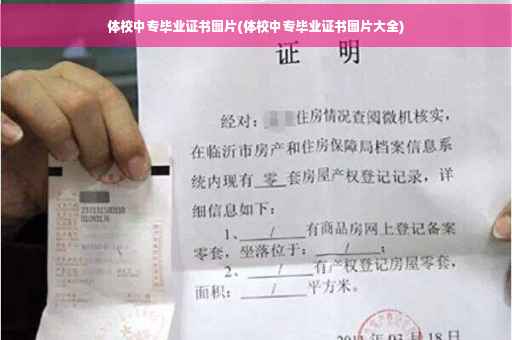 体校中专毕业证书图片(体校中专毕业证书图片大全)
证 明
经对： 住房情况查阅微机核实，
在临沂市房产和住房保障局档案信息系
统内现有 零 套房屋产权登记记录，详
细信息如下：
1、 / 有商品房网上登记备案
零套，坐落位于： / ；
2、 / 有产权登记房屋零套，
面积： / 平方米。
月 18 日